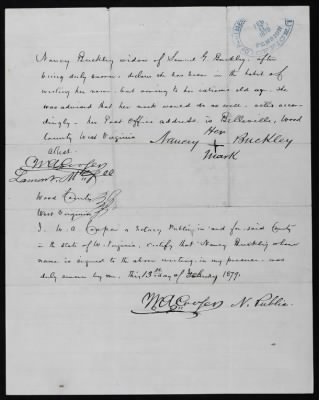 Nancy Buckley widow of Samuel G Buckley, after
being duly sworn, she has been in the habit of
writing her name, but owing to her extreme old age. She
was advised that her mark would do as well, acts accor-
dingly. Her Post Office address is Belleville, Wood
County West Virginia
attest.
Her
Nancy + Buckley
Mark
W A Cooper
Wood County
West Virginia
I. W. A. Cooper a Notary Public in and for said County
in the State of W. Virginia, certify that Nancy Buckley whose
name is signed to the above writing in my presence was
duly sworn by me, this 13th day of February 1879.
W A Cooper N. Public
PENSION